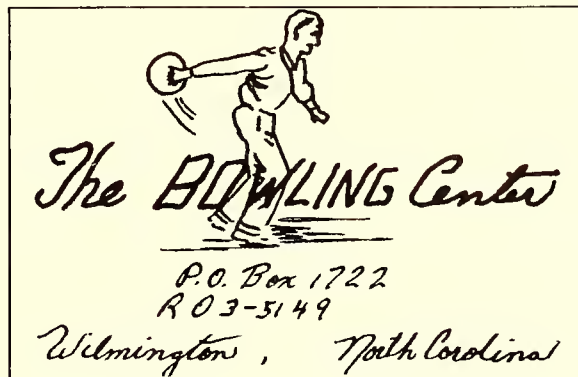 The BOWLING Center
P.O. Box 1722
RO3-5149
Wilmington, North Carolina